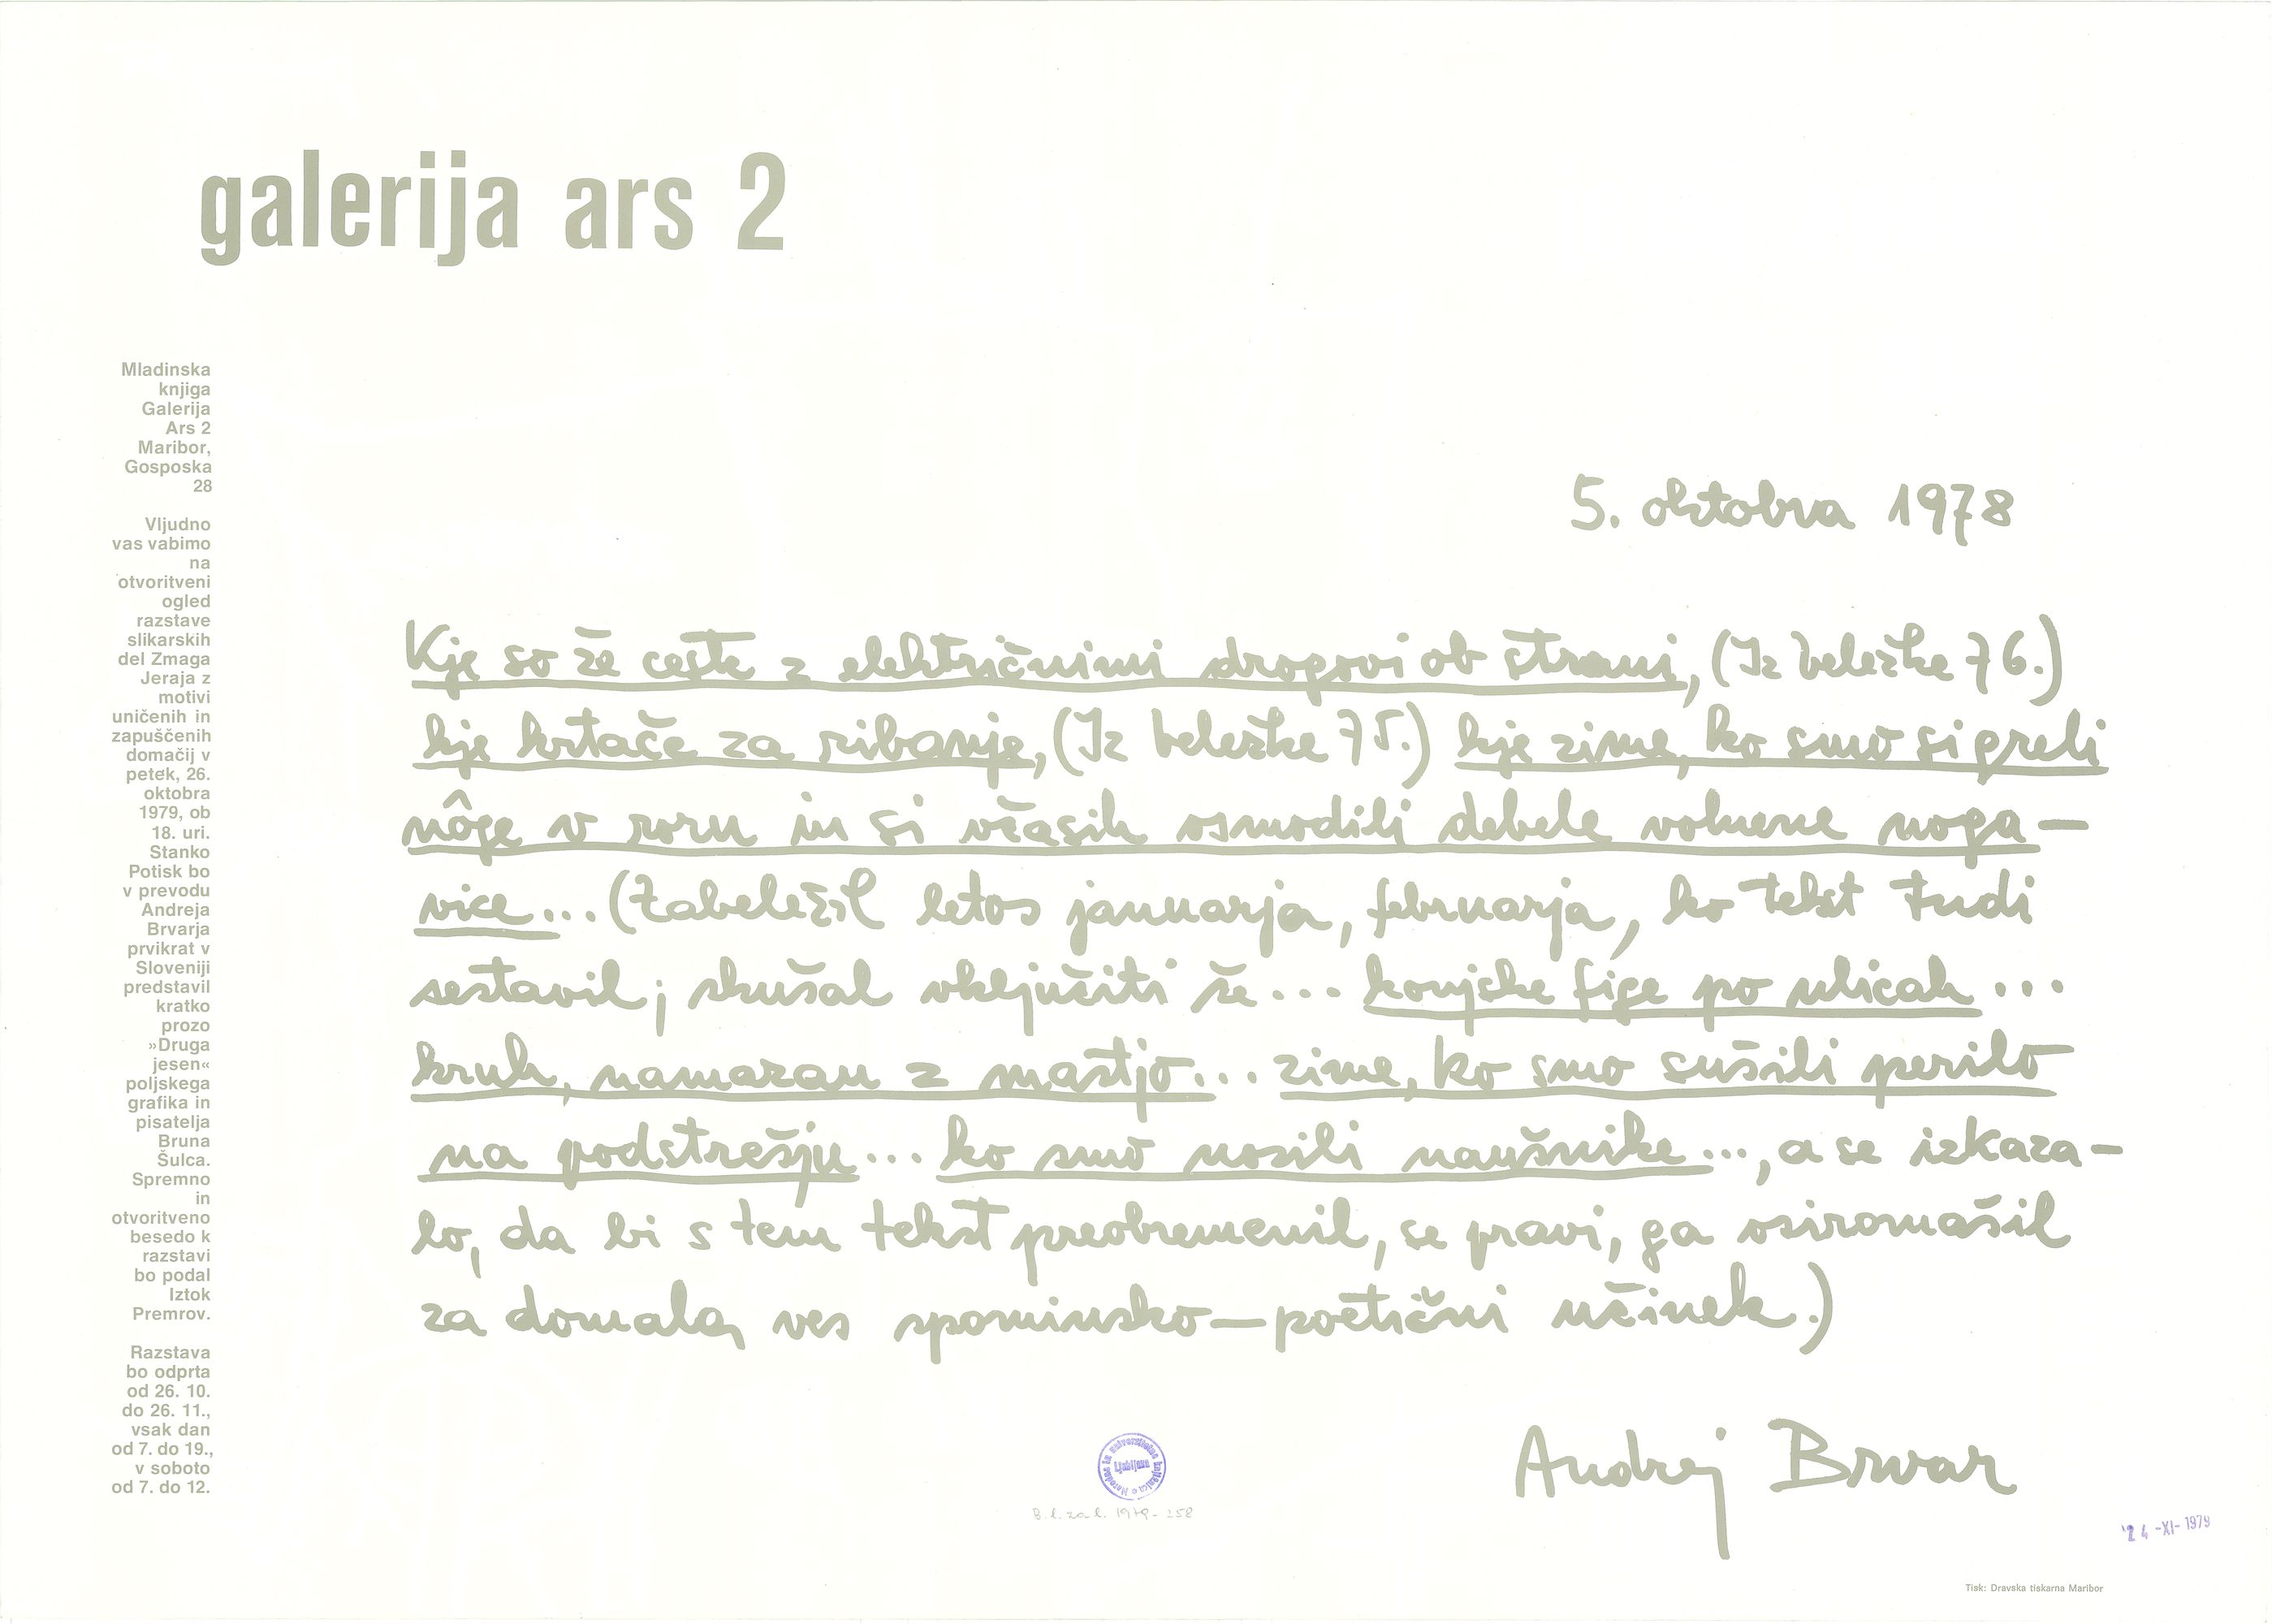 galerija ars 2
Mladinska
knjiga
Galerija
Ars 2
Maribor,
Gosposka
28
Vljudno
vas vabimo
na
otvoritveni
ogled
razstave
slikarskih
del Zmaga
Jeraja z
motivi
uničenih in
zapuščenih
domačij v
petek, 26.
oktobra
1979, ob
18. uri.
Stanko
Potisk bo
v prevodu
Andreja
Brvarja
prvikrat v
Sloveniji
predstavil
kratko
prozo
»Druga
jesen«
poljskega
grafika in
pisatelja
Bruna
Šulca.
Spremno
in
otvoritveno
besedo k
razstavi
bo podal
Iztok
Premrov.
Razstava
bo odprta
od 26. 10.
do 26. 11.,
vsak dan
od 7. do 19.,
v soboto
od 7. do 12.
5. oktobra 1978
Kje so že ceste z električnimi drogovi ob strani, (Iz beležke 76.)
kje krtače za ribanje, (Iz beležke 75.) kje zime, ko smo si greli
nôge v roru in si včasih osmodili debele volnene noga-
vice... (Zabeležil letos januarja, februarja, ko tekst tudi
sestavil; skušal vključiti še... konjske fige po ulicah...
kruh, namazan z mastjo... zime, ko smo sušili perilo
na podstrešju... ko smo nosili naušnike..., a se izkaza-
lo, da bi s tem tekst preobremenil, se pravi, ga osiromašil
za domala ves spominsko-poetični učinek.)
Andrej Brvar
Narodna in univerzitetna knjižnica
Ljubljana
B. l. za l. 1979-258
24-XI-1979
Tisk: Dravska tiskarna Maribor